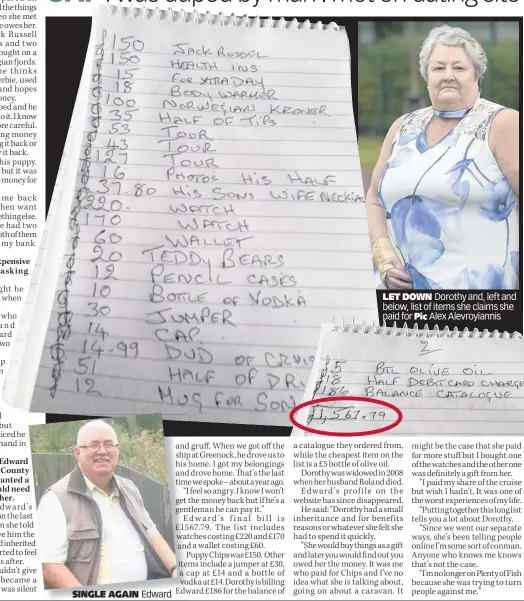 I was duped by man I met on dating site
150 JACK RUSSELL
150 HEALTH INS
15 FOR XTRA DAY
18 BODY WARMER
100 NORWEGIAN KRONER
35 HALF OF TIPS
53 TOUR
43 TOUR
127 TOUR
16 PHOTOS HIS HALF
37.80 HIS SONS WIFE NECKLA
220 WATCH
170 WATCH
60 WALLET
20 TEDDY BEARS
12 PENCIL CASES
10 BOTTLE OF VODKA
30 JUMPER
14 CAP
14.99 DVD OF CRUIS
5 HALF OF DR
12 MUG FOR SON
LET DOWN Dorothy and, left and
below, list of items she claims she
paid for Pic Alex Alevroyiannis
2
£5 BTL OLIVE OIL
£18 HALF DEBIT CARD CHARGE
£186 BALANCE CATALOGUE
£1,567.79
SINGLE AGAIN Edward
and gruff. When we got off the
ship at Greenock, he drove us to
his home. I got my belongings
and drove home. That's the last
time we spoke – about a year ago.
"I feel so angry. I know I won't
get the money back but if he's a
gentleman he can pay it."
Edward's final bill is
£1567.79. The list includes
watches costing £220 and £170
and a wallet costing £60.
Puppy Chips was £150. Other
items include a jumper at £30,
a cap at £14 and a bottle of
vodka at £14. Dorothy is billing
Edward £186 for the balance of
a catalogue they ordered from,
while the cheapest item on the
list is a £5 bottle of olive oil.
Dorothy was widowed in 2008
when her husband Roland died.
Edward's profile on the
website has since disappeared.
He said: "Dorothy had a small
inheritance and for benefits
reasons or whatever she felt she
had to spend it quickly.
"She would buy things as a gift
and later you would find out you
owed her the money. It was me
who paid for Chips and I've no
idea what she is talking about,
going on about a caravan. It
might be the case that she paid
for more stuff but I bought one
of the watches and the other one
was definitely a gift from her.
"I paid my share of the cruise
but wish I hadn't. It was one of
the worst experiences of my life.
"Putting together this long list
tells you a lot about Dorothy.
"Since we went our separate
ways, she's been telling people
online I'm some sort of conman.
Anyone who knows me knows
that's not the case.
"I'm no longer on Plenty of Fish
because she was trying to turn
people against me."